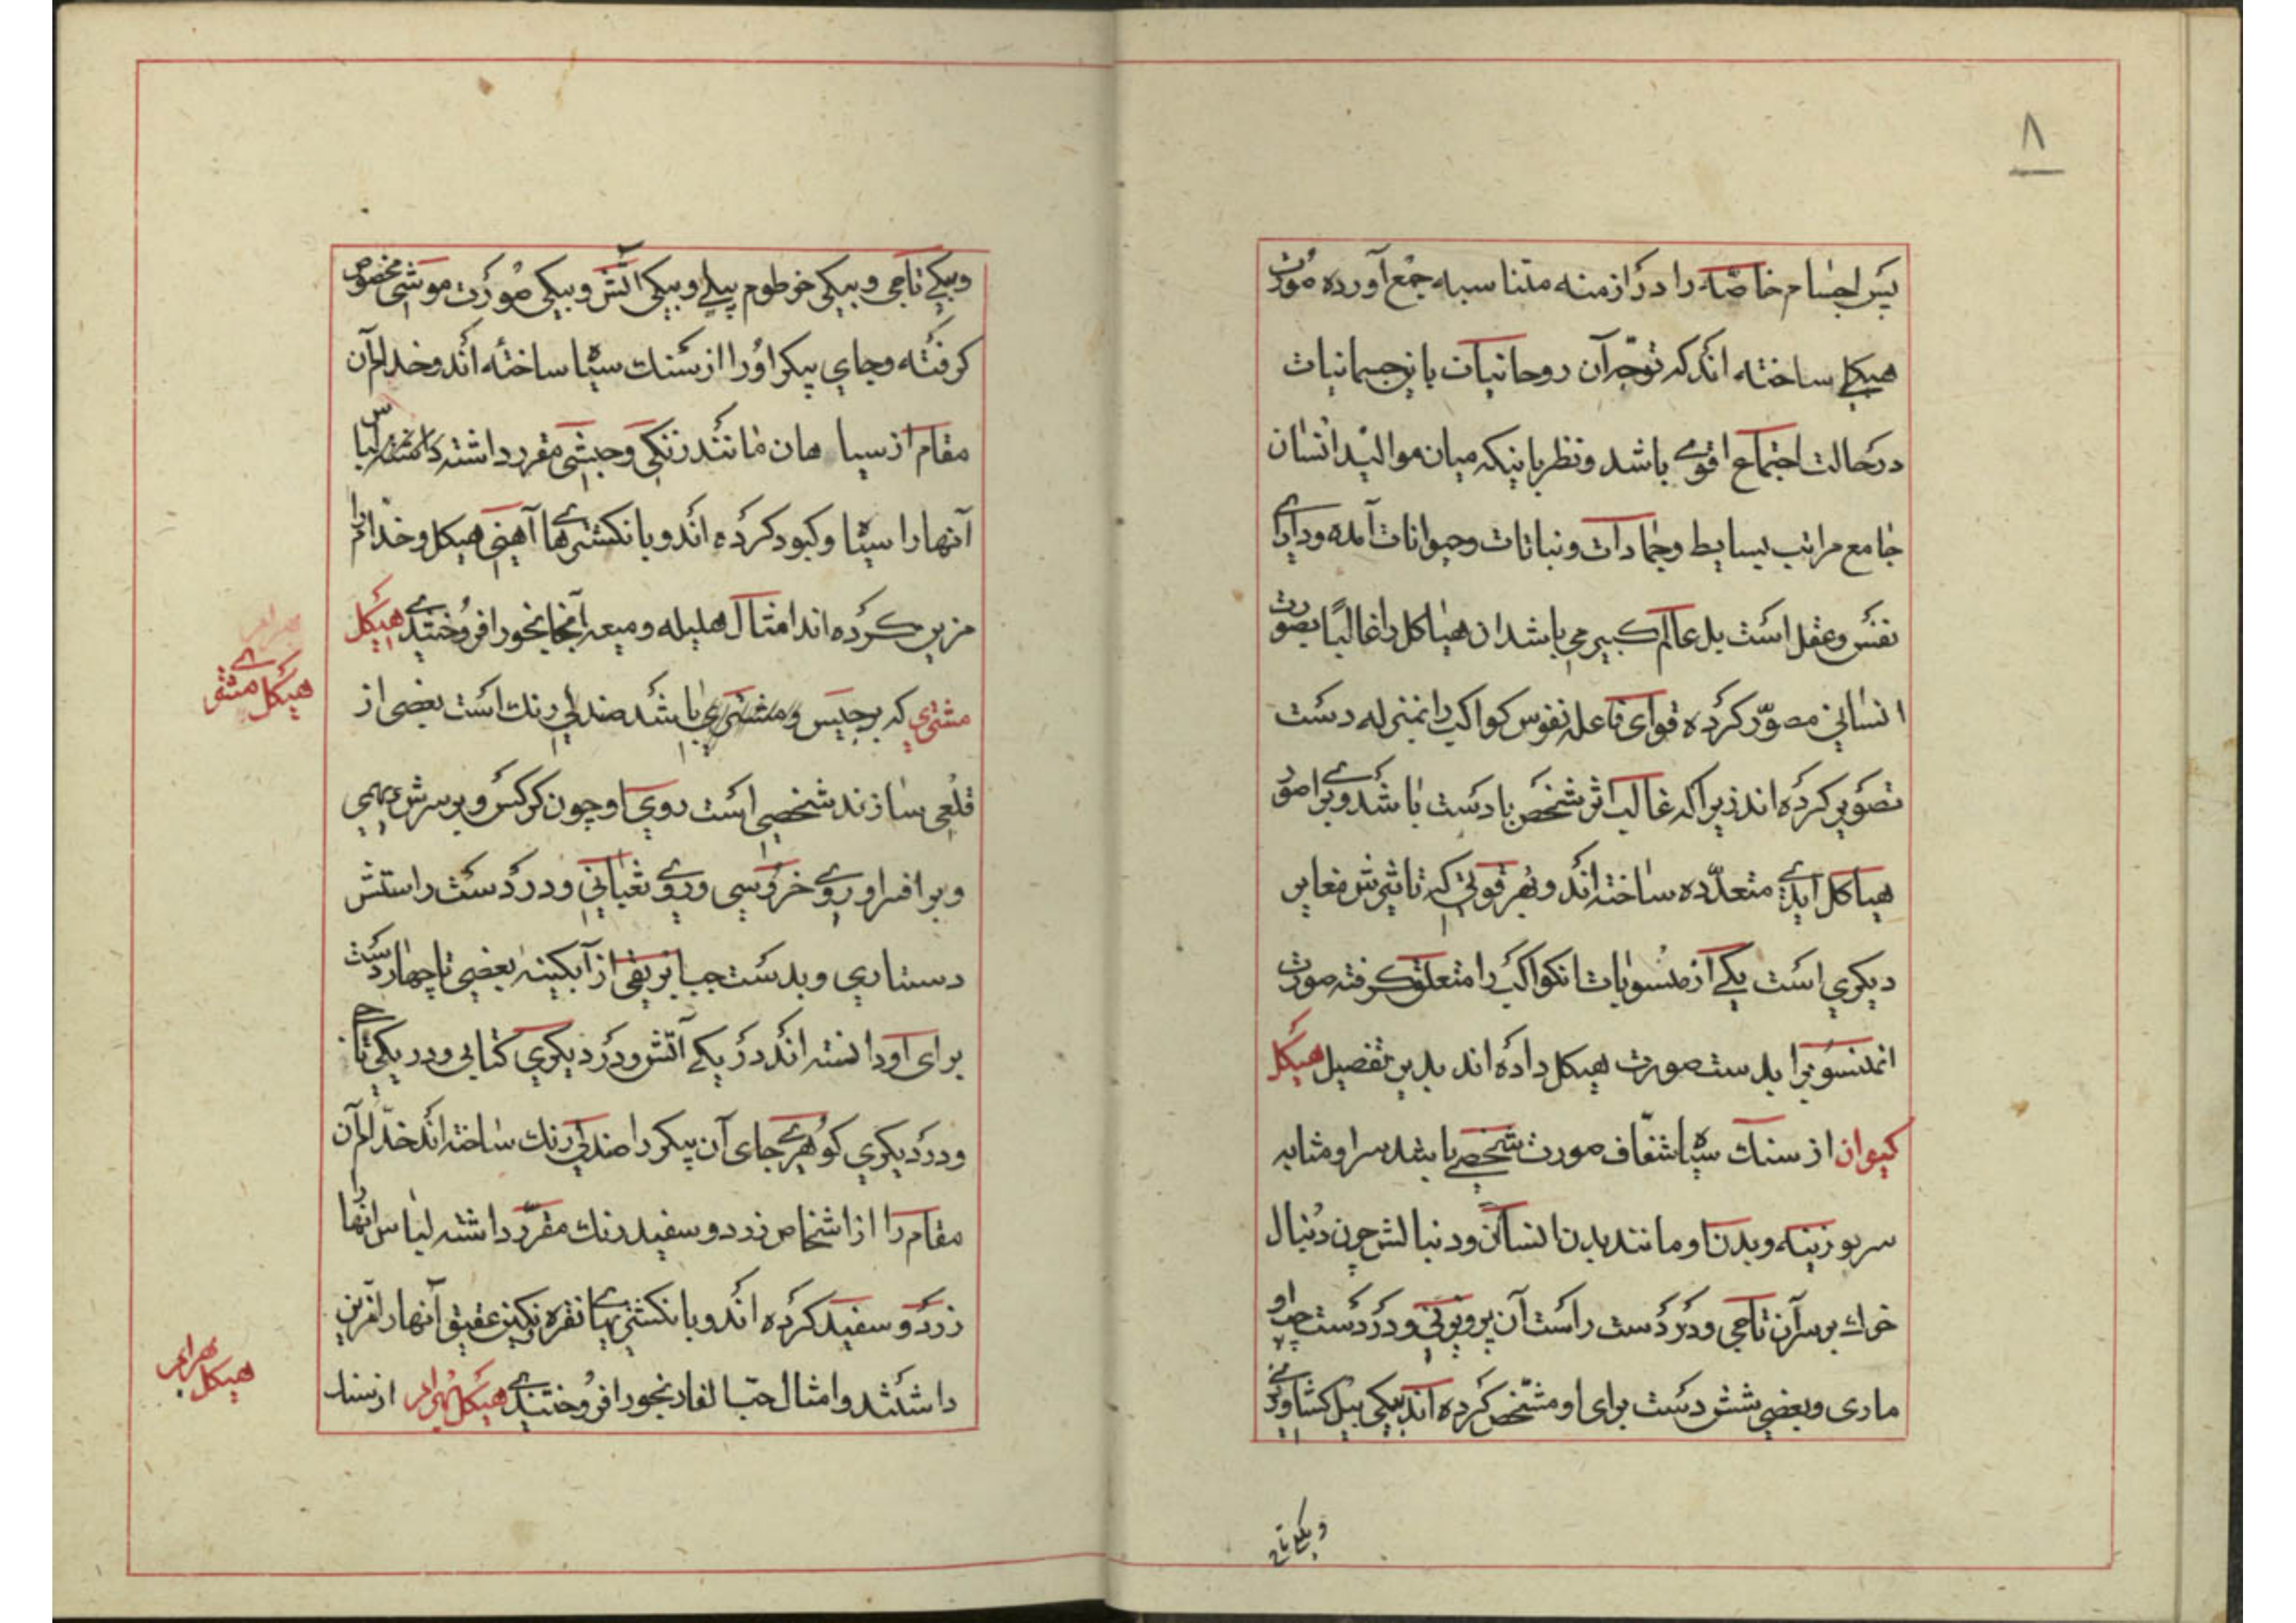 ٨
پس اجسام خاصّه را در ازمنه متناسبه جمع آورده صورت
هیکلی ساخته اند که توجّه آن روحانیات باین جسمانیات
در حالت اجتماع اقوی باشد و نظر باینکه میان موالید انسان
جامع مراتب بسایط و جمادات و نباتات و حیوانات آمده و دارای
نفس و عقل است بل عالم کبیر می باشد ان هیاکل را غالبًا بصورت
انسانی مصوّر کرده قوای فاعله نفوس کواکب را بمنزله دست
تصویر کرده اند زیرا که غالب اثر شخص با دست باشد و برای صور
هیاکل ایدی متعدّده ساخته اند و بهر قوتی که تاثیرش مغایر
دیکری است یکی از منسوبات انکواکب را متعلق کرفته صورت
انمنسوبرا بدست صورت هیکل داده اند بدین تفصیل هیکل
کیوان از سنك سیاه شفّاف صورت شخصی باشد سر او مثابه
سر بوزینه و بدن او مانند بدن انسان و دنبالش چون دنبال
خوك بر سر آن تاجی و در دست راست آن پرویزنی و در دست چپ او
ماری و بعضی شش دست برای او مشخّص کرده اند بیکی بیل کشاورزی
و بیکی تاج
و بیکی تاجی و بیکی خرطوم پیلی و بیکی آتش و بیکی صورت موشی مخصوص
کرفته و جای پیکر او را از سنك سیاه ساخته اند و خدام آن
مقام از سیاهان مانند زنکی و حبشی مقرر داشته لباس
آنها را سیاه و کبود کرده اند و بانکشتری ها آهنی هیکل و خدام را
مزین کرده اند امثال هلیله و میعه آنجا بخور افروختندی هیکل
مشتری که برجیس و مشتری باشد صندلی رنك است بعضی از
قلعی سازند شخصی است روی او چون کرکس و بر سرش دیهیمی
و بر افسر او روی خروسی و روی ثعبانی و در دست راستش
دستاری و بدست چپ ابریقی از آبکینه بعضی تا چهار دست
برای او دانسته اند در یکی آتش و در دیکری کتابی و در یکی تاج
و در دیکری کوهری جای آن پیکر را صندلی رنك ساخته اند خدّام آن
مقام را از اشخاص زرد و سفید رنك مقرّر داشته لباس انها را
زرد و سفید کرده اند و بانکشتری های نقره نکین عقیق آنها را مزین
داشتند و امثال حبّ الغار بخور افروختندی هیکل بهرام از سنك
هیکل مشتری
هیکل بهرام